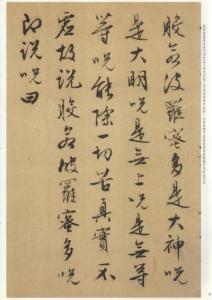 般若波羅蜜多是大神呪
是大明呪是無上呪是無等
等呪能除一切苦真實不
虛故說般若波羅蜜多呪
即說呪曰